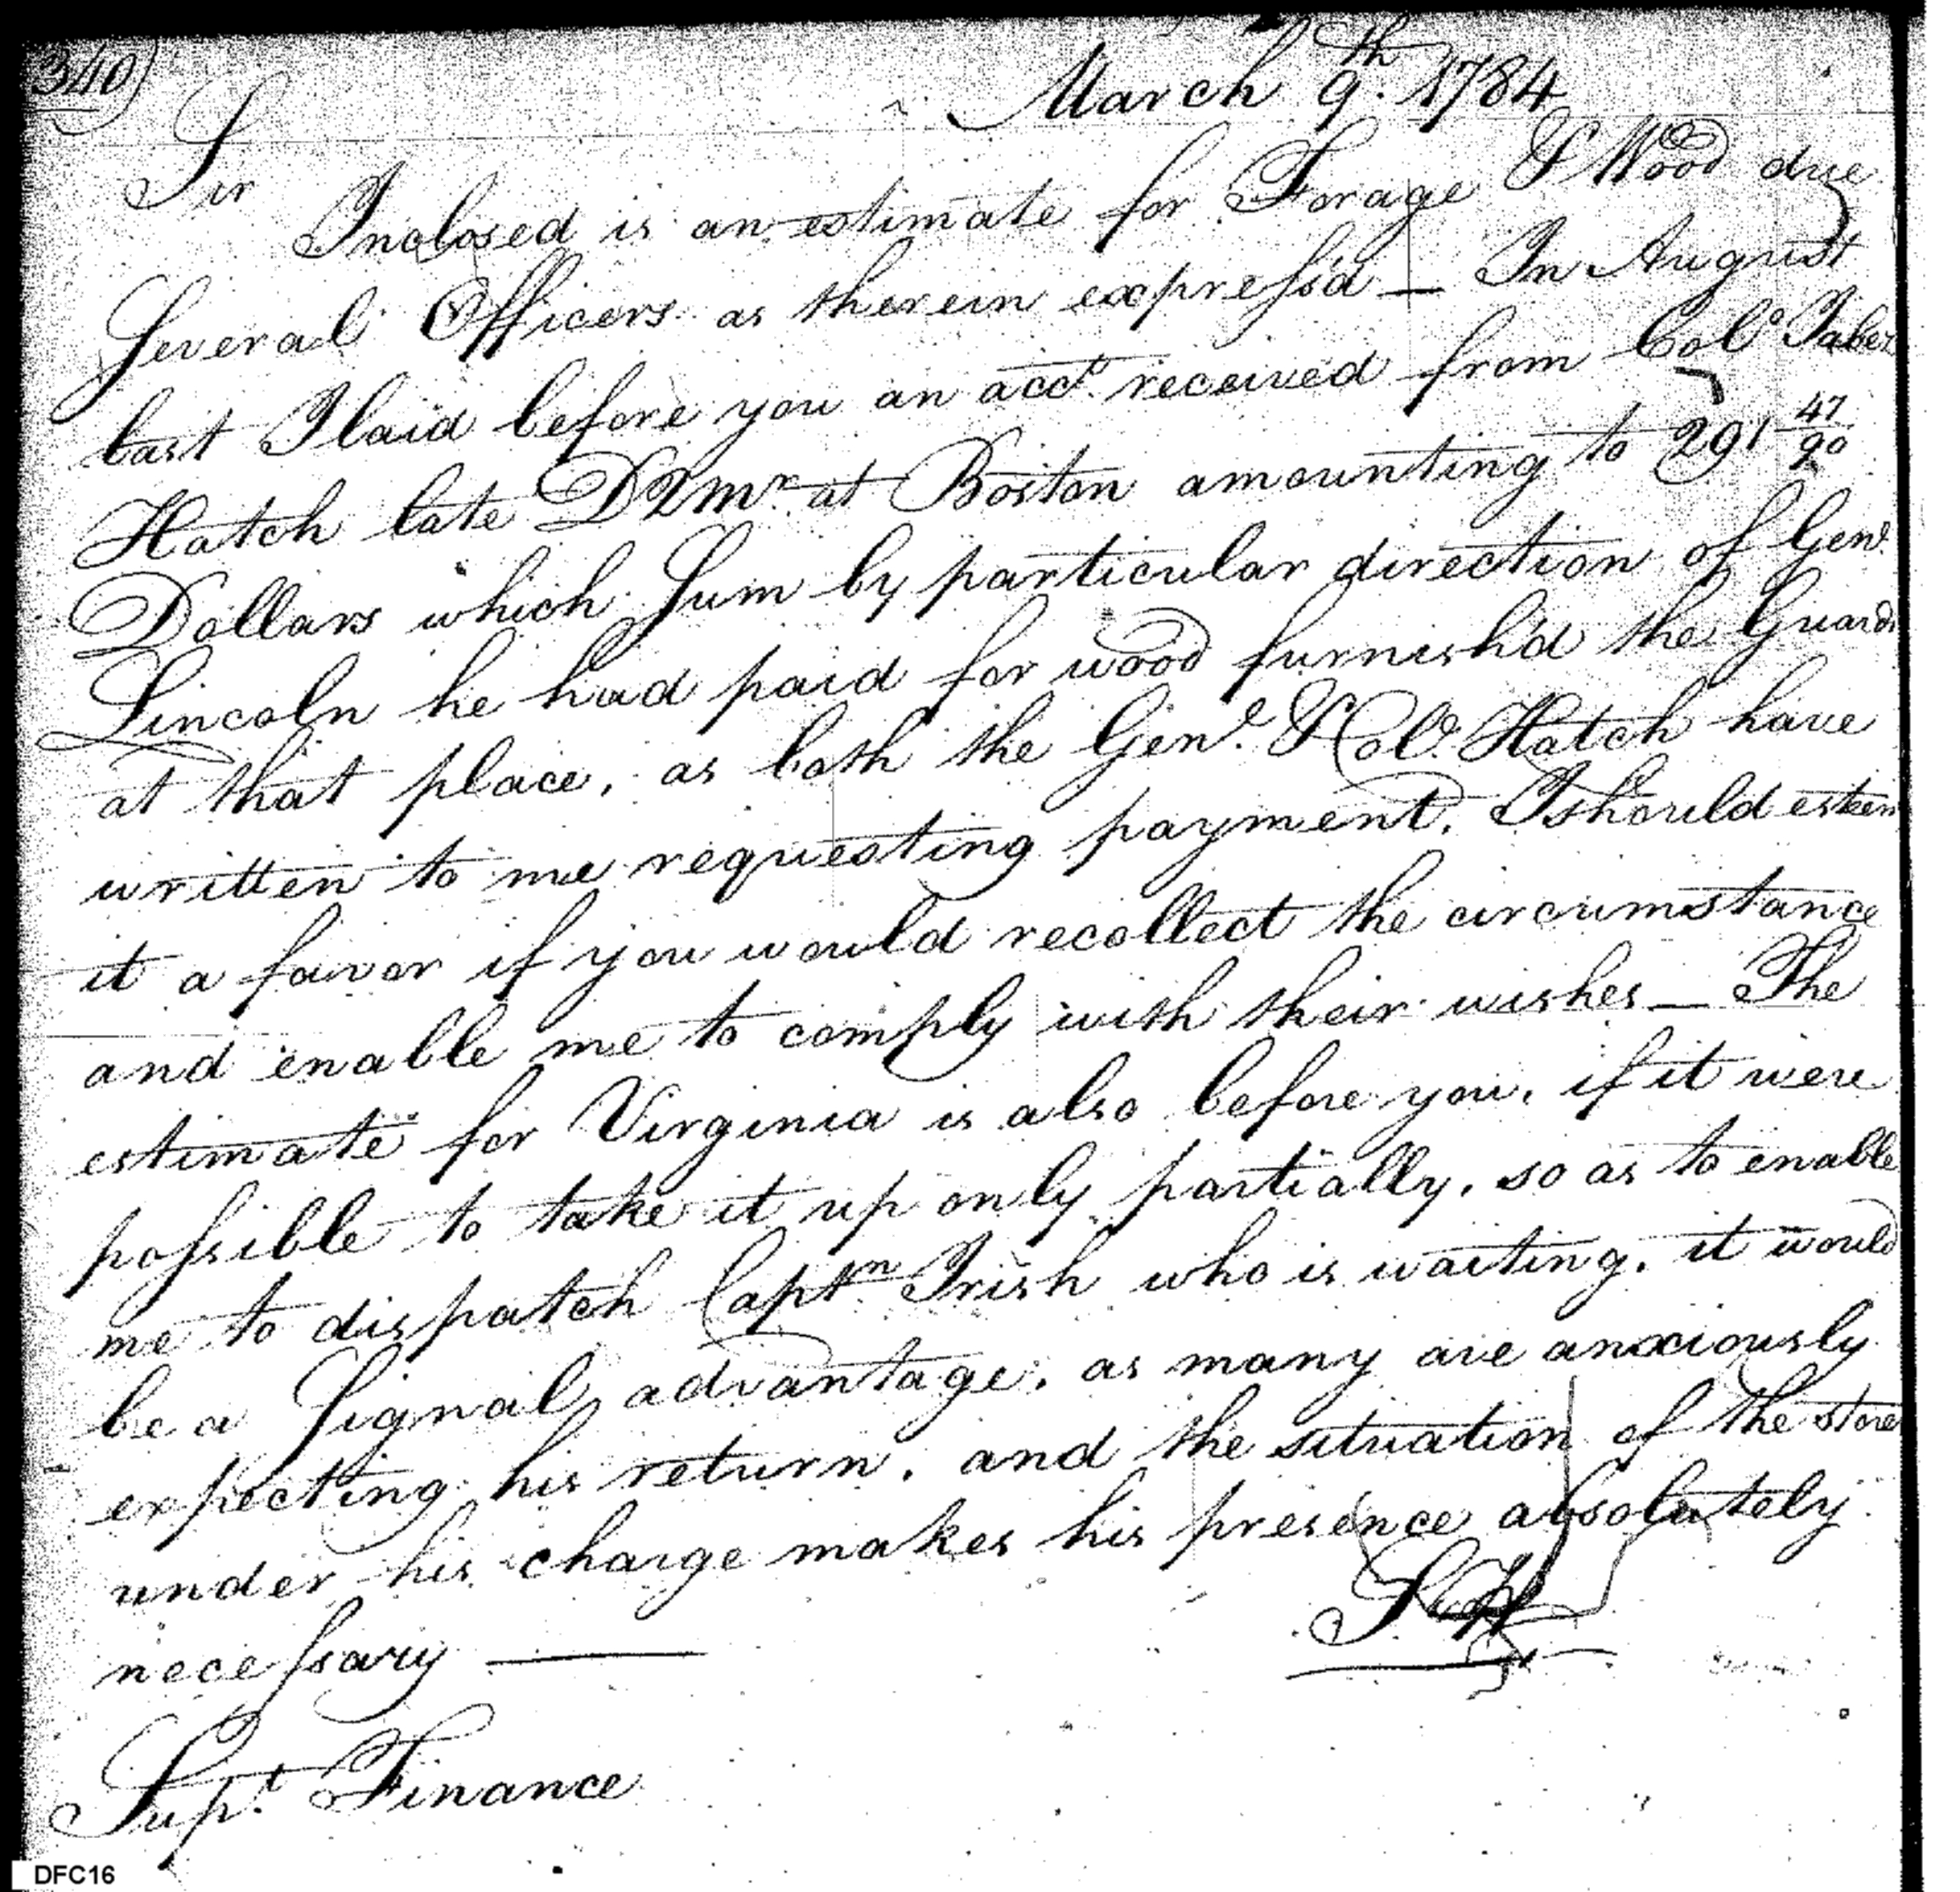 340)
March 9th. 1784
Sir
Inclosed is an estimate for Forage & Wood due
Several Officers as therein express'd — In August
last I laid before you an acct. received from Colo. Jabez
Hatch late DQMr. at Boston amounting to 291 47/90
Dollars which Sum by particular direction of Genl.
Lincoln he had paid for wood furnish'd the Guards
at that place, as both the Genl. & Colo. Hatch have
written to me requesting payment. I should esteem
it a favor if you would recollect the circumstance
and enable me to comply with their wishes — The
estimate for Virginia is also before you, if it were
possible to take it up only partially, so as to enable
me to dispatch Captn. Irish who is waiting, it would
be a Signal advantage, as many are anxiously
expecting his return, and the situation of the store
under his charge makes his presence absolutely
necessary —
SH
Supt. Finance
DFC16